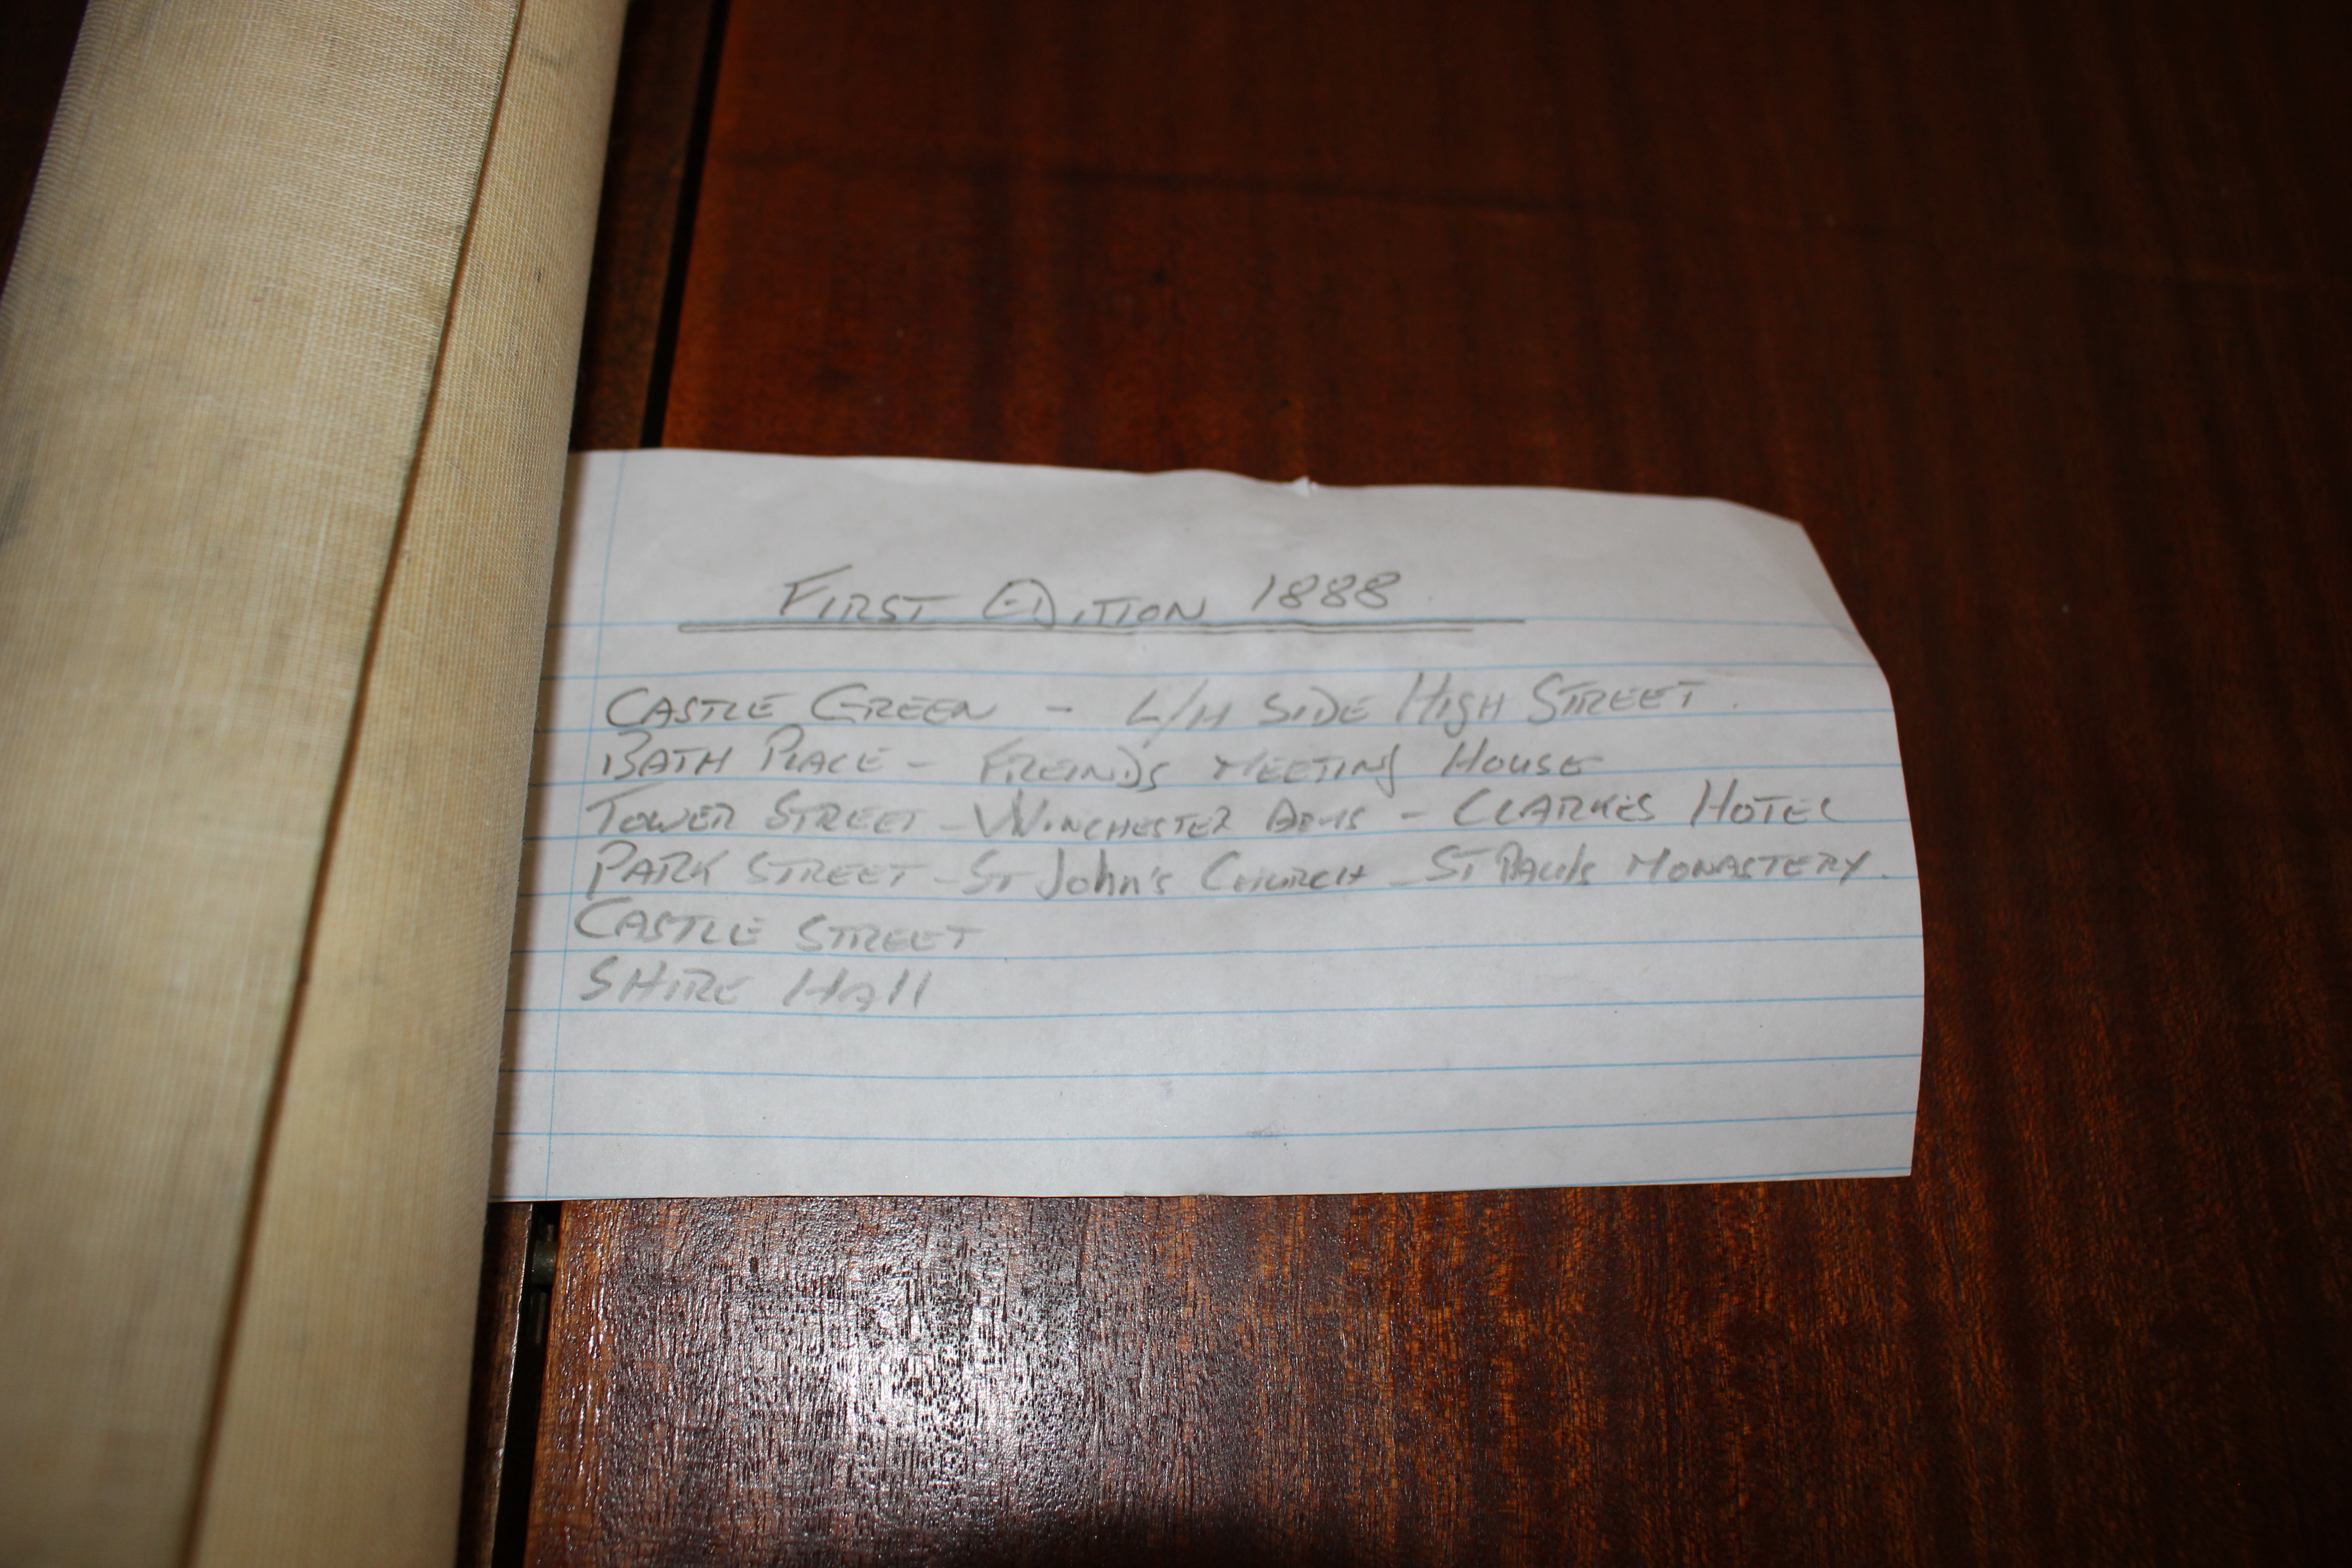 FIRST EDITION 1888
CASTLE GREEN - L/H SIDE HIGH STREET.
BATH PLACE - FREINDS MEETING HOUSE
TOWER STREET - WINCHESTER ARMS - CLARKES HOTEL
PARK STREET - ST John's CHURCH - ST PAULS MONASTERY.
CASTLE STREET
SHIRE HAll